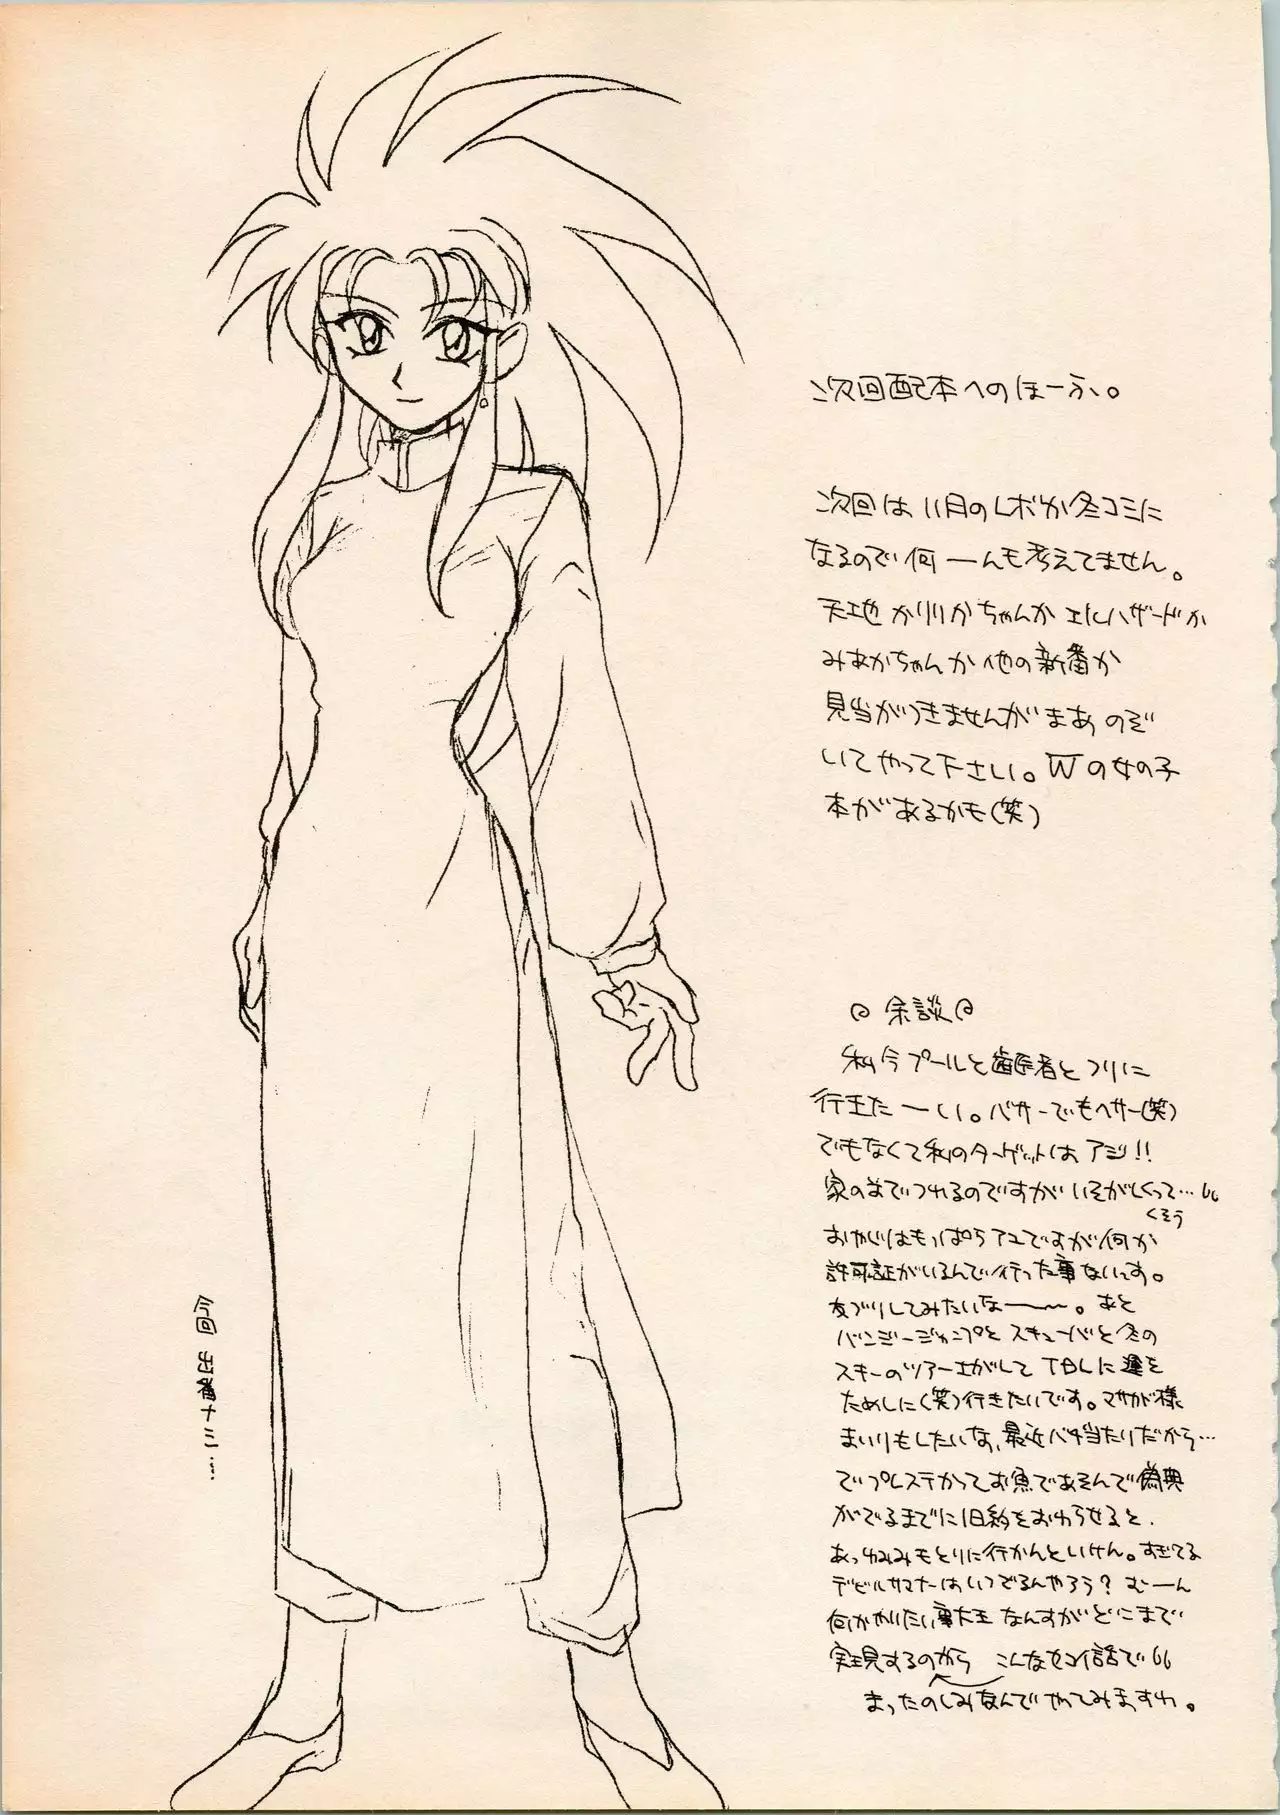 次回配本へのほーふ。
次回は、11月のレボか冬コミに
なるので何ーんも考えてません。
天地かりりかちゃんかエルハザードか
みあかちゃんか他の新番か
見当がつきませんがまあのぞ
いてやって下さい。Wの女の子
本があるかも(笑)
余談
私今プールと歯医者とつりに
行きたーい。バサーでもヘサー(笑)
でもなくて私のターゲットは、アジ!!
家の前でつれるのですがいそがしくって…
くそう
おやじはもっぱらアユですが何か
許可証がいるんで行った事ないっす。
友づりしてみたいなー〜。あと
バンジージャンプとスキューバと冬の
スキーのツアーさがして TBLに運を
ためしに(笑)行きたいです。マサカド様
まいりもしたいな、最近バチ当たりだから…
でプレステかってお魚であそんで偽典
がでるまでに旧約をおわらせると、
あっ ねみみもとりに行かんといけん。すぎてる
デビルサマナーはいつでるんやろう? むーん
何かやりたい事大王なんすがどこまで
実現するのから こんなセコイ話で
まったのしみなんでやってみますわ。
今回出番ナシ…